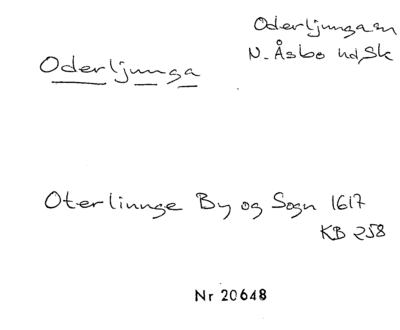 Oderljunga sn
N. Åsbo hd, Sk
Oderljunga
Oterlinnge By og Sogn 1617
KB 258
Nr 20648